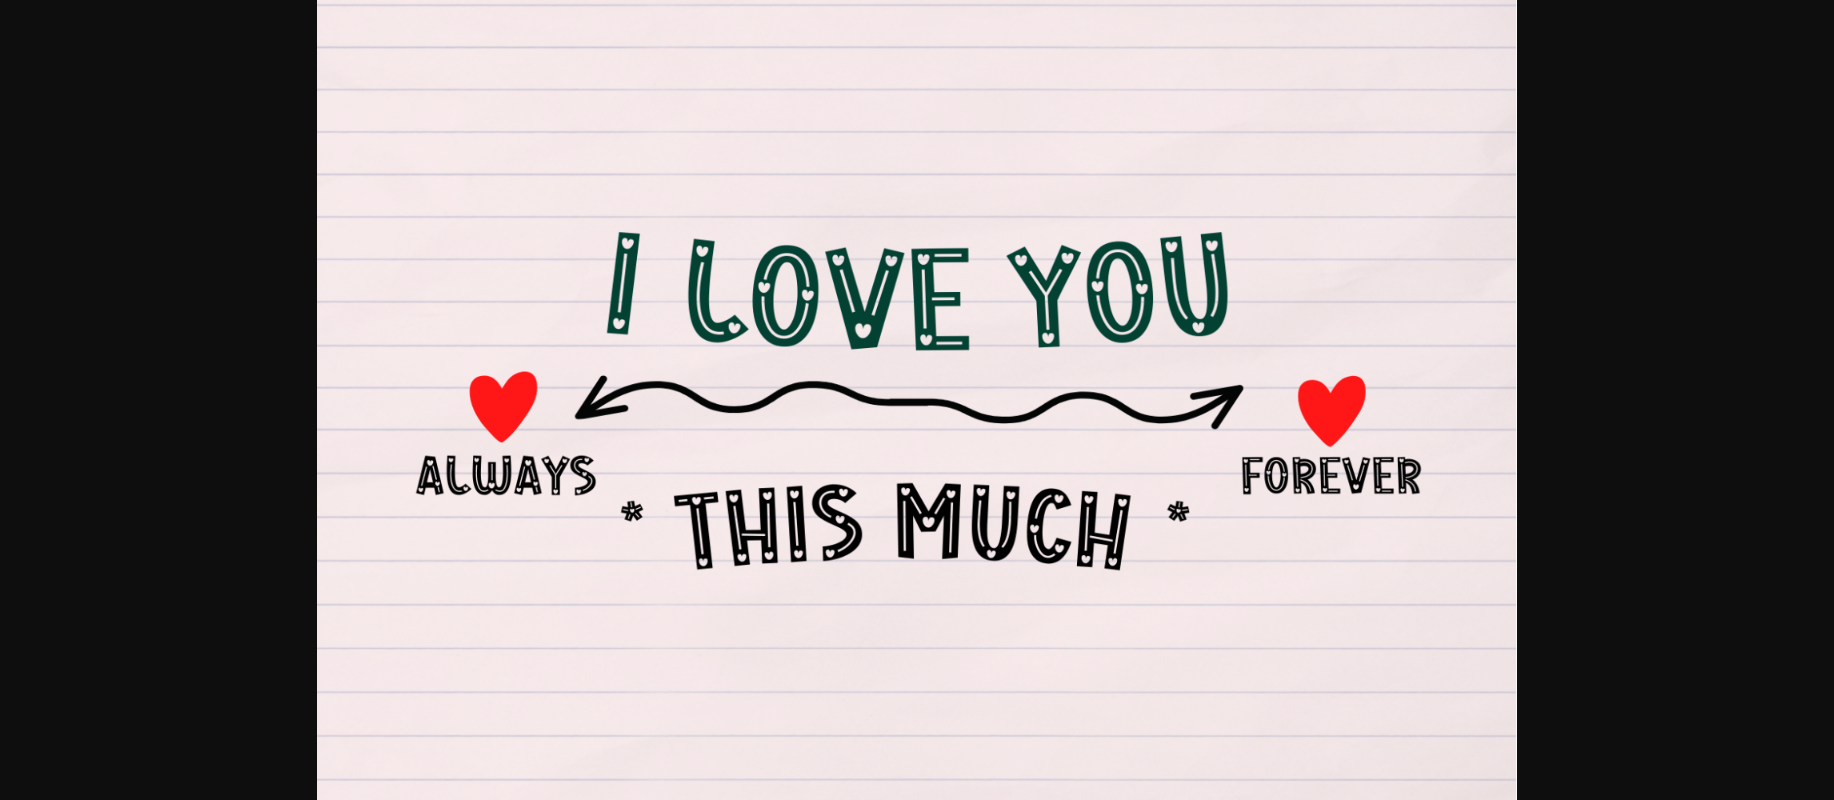 I LOVE YOU
ALWAYS
FOREVER
* THIS MUCH *